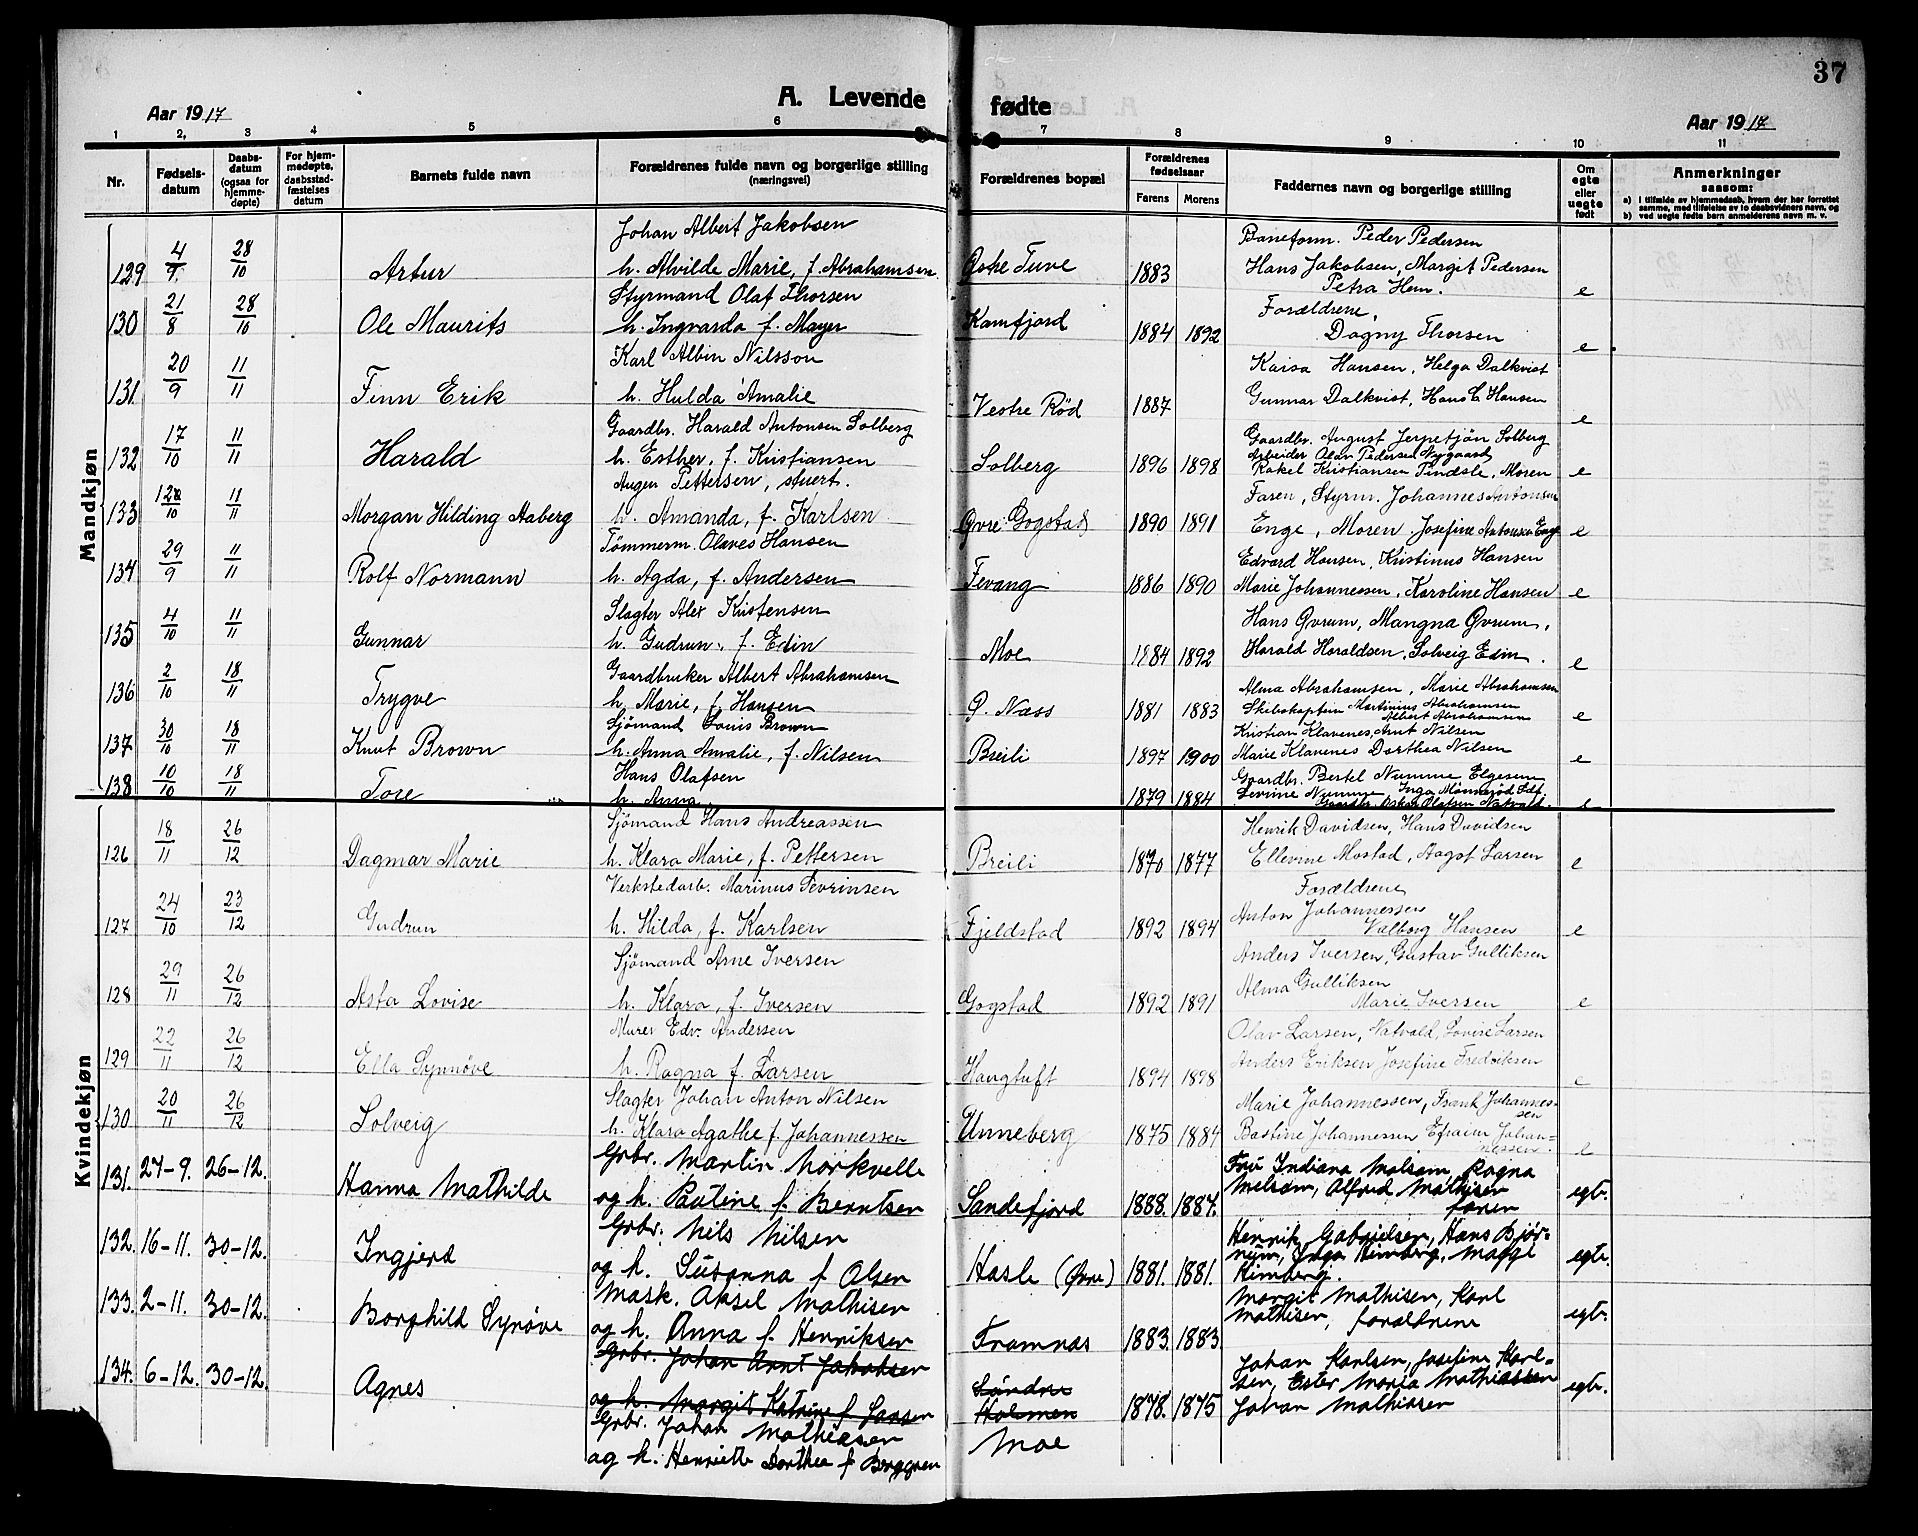 37
Aar 1917
A. Levende fødte
Aar 1917
1 2, 3 4 5 6 7 8 9 10 11
Nr.
Fødsels-datum
Daabs-datum (ogsaa for hjemme-døpte)
For hjem-medøpte, daabsstad-fæstelses datum
Barnets fulde navn
Forældrenes fulde navn og borgerlige stilling (næringsvei)
Forældrenes bopæl
Forældrenes fødselsaar
Farens Morens
Faddernes navn og borgerlige stilling
Om egte eller uegte født
Anmerkninger saasom:
a) I tilfælde av hjemmedaab, hvem der har forrettet samme, med tilføielse av to daabsvidners navn, og
b) ved uegte fødte barn anmelderens navn m. v.
Mandkjøn
Johan Albert Jakobsen Baneform. Peder Pedersen
129 4/9 28/10 Artur h. Alvilde Marie, f. Abrahamsen Østre Tuve 1883 Hans Jakobsen, Margit Pedersen
Petra Hem. e
Styrmand Olaf Thorsen Forældrene,
130 21/8 28/10 Ole Maurits h. Ingvarda f. Mayer Kamfjord 1884 1892 Dagny Thorsen e
Karl Albin Nilsson Kaisa Hansen, Helga Dalkvist
131 20/9 11/11 Finn Erik h. Hulda Amalie Vestre Rød 1887 Gunnar Dalkvist, Hans C. Hansen e
Gaardbr. Harald Antonsen Solberg Gaardbr. August Jerpetjøn Solberg
Arbeider Olav Pedersen Nygaard
132 17/10 11/11 Harald h. Esther, f. Kristiansen Solberg 1896 1898 Rakel Kristiansen Tindsle, Moren e
Augen Pettersen, stuert. Faren, Styrm. Johannes Antonsen
133 /10 11/11 Morgan Hilding Aaberg h. Amanda, f. Karlsen Øvre Gogstad 1890 1891 Enge, Moren. Josefine Antonsen Enge e
Tømmerm. Olaves Hansen Edvard Hansen, Kristinus Hansen
134 29/9 11/11 Rolf Normann h. Agda, f. Andersen Fevang 1886 1890 Marie Johannessen, Karoline Hansen e
Slagter Alex Kristensen Hans Gvrum, Mangna Gvrum,
135 4/10 11/11 Gunnar h. Gudrun, f. Edin Moe 1884 1892 Harald Haraldsen, Solveig Edin. e
Gaardbruker Albert Abrahamsen Alma Abrahamsen, Marie Abrahamsen
136 2/10 18/11 Trygve h. Marie, f. Hansen Ø. Næss 1881 1883 Skibskaptein Martinius Abrahamsen
Albert Abrahamsen e
Sjømand Louis Brown Kristian Klavenes, Arnt Nilsen
137 30/10 18/11 Knut Brown h. Anna Amalie, f. Nilsen Breili 1897 1900 Marie Klavenes Dorthea Nilsen e
Hans Olafsen Gaardbr. Bertel Numme Elgesem
138 10/10 18/11 Tore h. Anna, 1879 1884 Levine Numme, Inga
Gaardbr. Oskar Olafsen Natvald. e
Kvindekjøn
Sjømand Hans Andreassen Henrik Davidsen, Hans Davidsen
126 18/11 26/12 Dagmar Marie h. Klara Marie, f. Pettersen Breili 1870 1877 Ellevine Mostad, Aagot Larsen e
Verkstedarb. Marinus Sevrinsen Forældrene
Anton Johannessen
127 24/10 23/12 Gudrun h. Hilda, f. Karlsen Fjeldstad 1892 1894 Valborg Hansen e
Sjømand Arne Iversen Anders Iversen, Gustav Gulliksen
Alma Gulliksen
128 29/11 26/12 Asta Lovise h. Klara, f. Iversen Gogstad 1892 1891 Marie Iversen e
Murer Edv. Andersen Olav Larsen, Natvald, Lovise Larsen
129 22/11 26/12 Ella Synnøve h. Ragna f. Larsen Haugtuft 1894 1898 Anders Eriksen Josefine Fredriksen e
Slagter Johan Anton Nilsen Marie Johannessen, Frank Johannes-
sen
130 20/11 26/12 Solveig h. Klara Agathe f. Johannessen Unneberg 1875 1884 Bastine Johannessen Efraim Johan-
nessen. e
Grbr. Martin Mørkvelle Fru Indiana Melsom, Ragna
131. 27-9. 26-12. Hanna Mathilde og h. Pauline f. Berntsen Sandefjord 1888. 1887. Melsom, Alfred Mathisen
faren egb.
Grbr. Nils Nilsen Henrik Gabrielsen, Hans Bjør-
132. 16-11. 30-12. Ingjerd og h. Susanna f. Olsen Hasle (Øvre) 1881. 1881. num, Inga Kimberg, Maggi
Kimberg. egb.
Mask. Aksel Mathisen Margit Mathisen, Karl
133. 2-11. 30-12. Borghild Synøve og h. Anna f. Henriksen Framnæs 1883. 1883. Mathisen, forældrene egb.
Grbr. Johan Arnt Jakobsen Johan Karlsen, Josefine Karl-
134. 6-12. 30-12. Agnes og h. Margit Katrine f. Larsen Søndre Holmen 1878. 1875 sen, Ester Maria Mathiassen
Johan Mathiasen egb.
Grbr. Johan Mathiasen Moe
og h. Henriette Dorthea f. Berggren